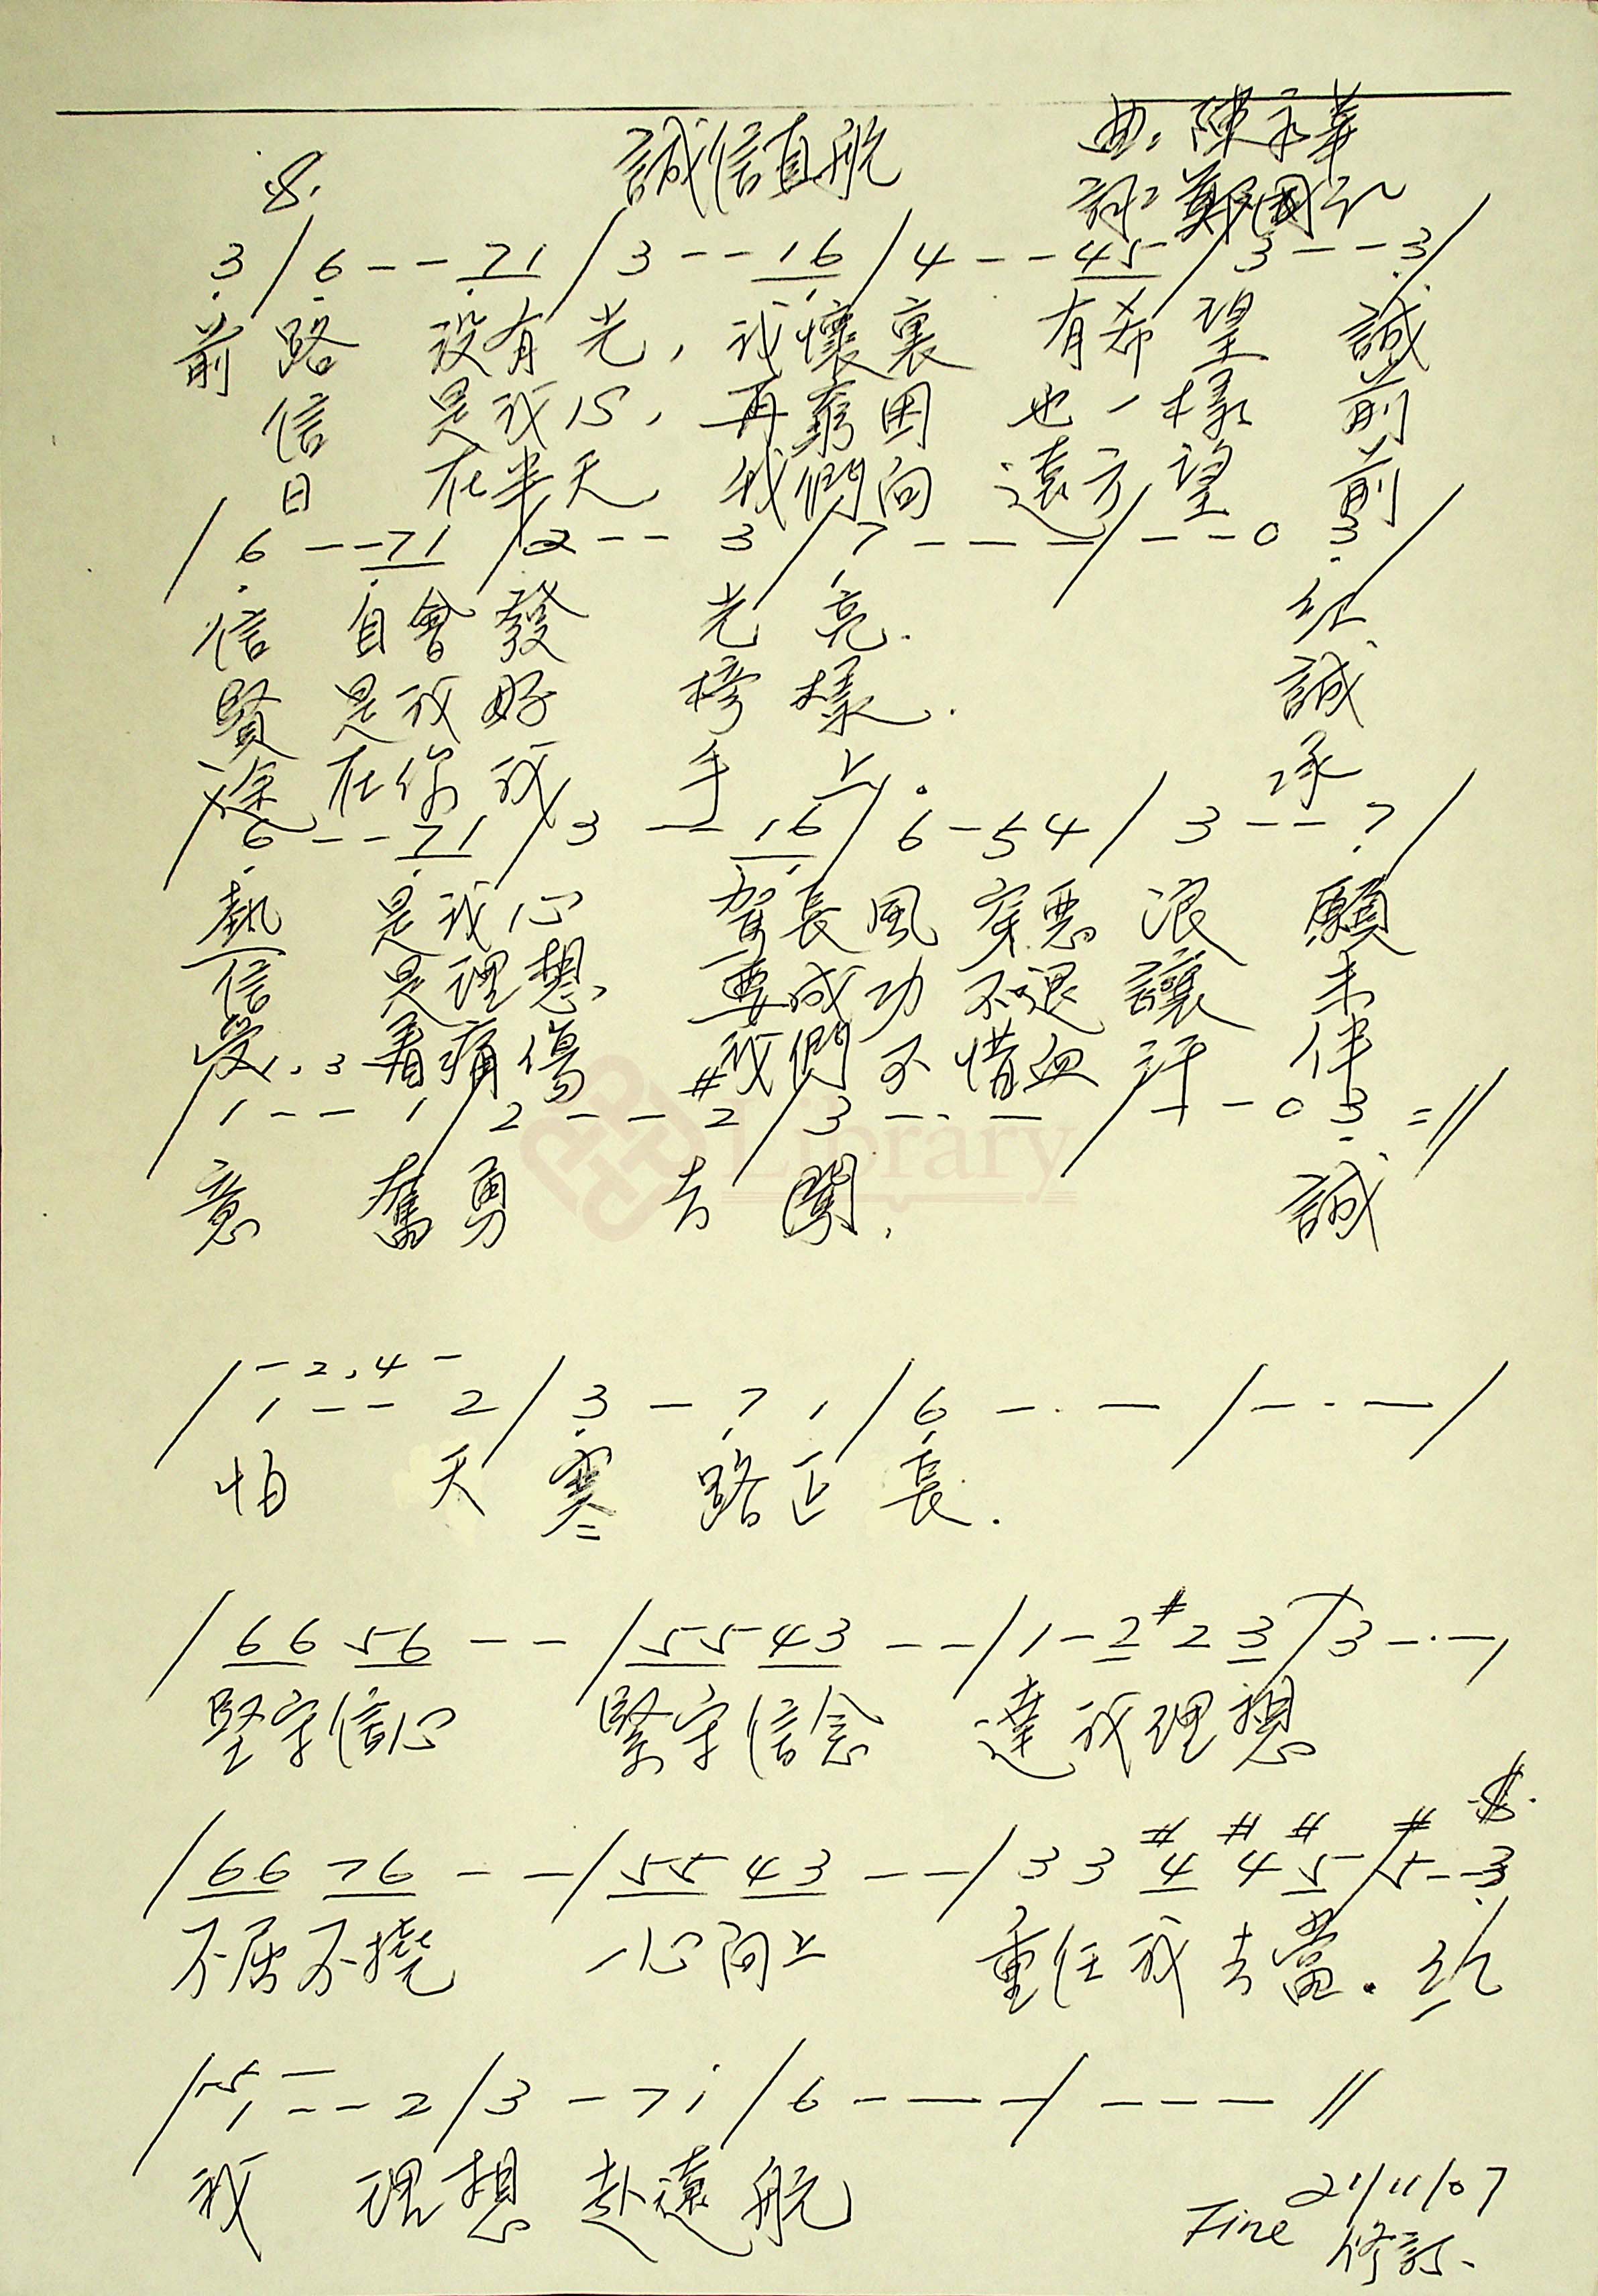 誠信直航
曲：陳永華
詞：鄭國江
3 / 6 - - 71 / 3 - - 16 / 4 - - 45 / 3 - - 3 /
前 路 沒有光， 我懷裏 有希望 誠
信 是我心， 再窮困 也一樣 前
日 在半天， 我們向 遠方望 前
/ 6 - - 71 / 2 - - 3 / 7 - - - / - - - 0 3 /
信 自會發 光亮. 紅
賢 是我好 榜樣. 誠
途 在你我 手上。 承
/ 6 - - 71 / 3 - - 16 / 6 - 5 4 / 3 - - 7 /
熱 是我心 駕長風 穿惡浪 願
信 是理想 要成功 不退讓 未
受 着痛傷 我們 不惜血汗 伴
1, 3
/ 1 - - 1 / 2 - - #2 / 3 - - - / - - 0 3 =//
意 奮勇 去闖， 誠
- 2, 4 -
/ 1 - - 2 / 3 - 7 1 / 6 - - - / - - - /
怕 天寒 路正長.
/ 66 56 - - / 55 43 - - / 1 - 2 #2 3 / 3 - - -
堅守信心 緊守信念 達我理想
/ 66 76 - - / 55 43 - - / 3 3 #4 #4 #5 / #5 - - 3
不屈不撓 一心向上 重任我去當。 紅
5 -
/ 1 - - 2 / 3 - 7 i / 6 - - - / - - - //
我 理想 赴遠航
Fine 21/11/07
修訂.
Library